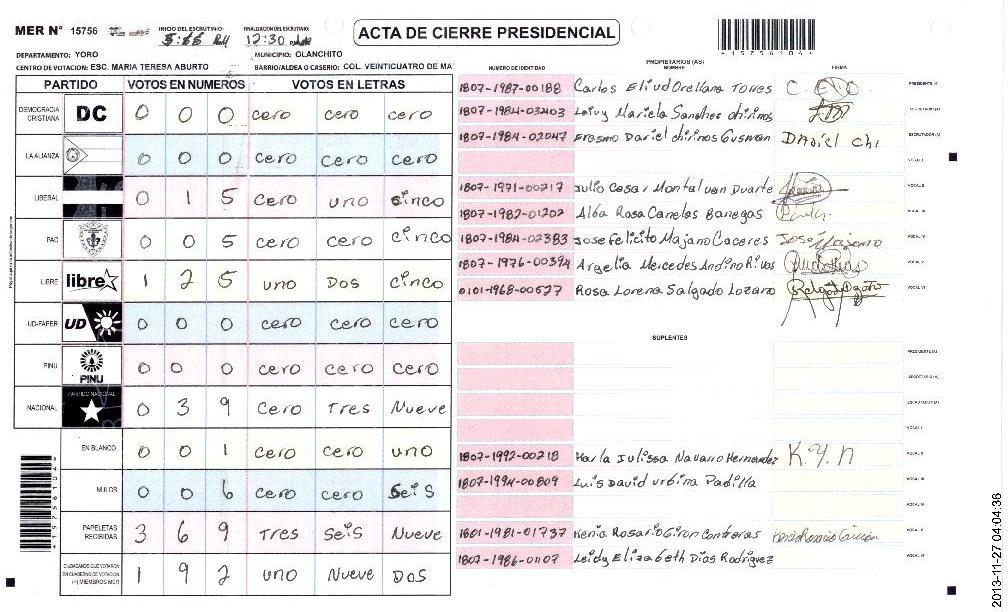 MER N° 15756 INICIO DEL ESCRUTINIO: FINALIZACION DEL ESCRUTINIO: 12:30
ACTA DE CIERRE PRESIDENCIAL
DEPARTAMENTO: YORO MUNICIPIO: OLANCHITO
CENTRO DE VOTACION: ESC. MARIA TERESA ABURTO BARRIO/ALDEA O CASERIO: COL. VEINTICUATRO DE MA
PARTIDO VOTOS EN NUMEROS VOTOS EN LETRAS
DEMOCRACIA CRISTIANA DC 0 0 0 cero cero cero
LA ALIANZA 0 0 0 cero cero cero
LIBERAL 0 1 5 cero uno cinco
PAC 0 0 5 cero cero cinco
LIBRE libre 1 2 5 uno Dos cinco
UD-FAPER UD 0 0 0 cero cero cero
PINU PINU 0 0 0 cero cero cero
NACIONAL PARTIDO NACIONAL 0 3 9 cero Tres Nueve
EN BLANCO 0 0 1 cero cero uno
NULOS 0 0 6 cero cero Seis
PAPELETAS RECIBIDAS 3 6 9 Tres Seis Nueve
CIUDADANOS QUE VOTARON EN CUADERNO DE VOTACION (+) MIEMBROS MER 1 9 2 uno Nueve Dos
PROPIETARIOS (AS)
NUMERO DE IDENTIDAD NOMBRE FIRMA
1807-1987-00188 Carlos Eliud Orellana Torres PRESIDENTE (A)
1807-1984-03403 Leivy Mariela Sanches chirinos SECRETARIO (A)
1807-1984-02047 Erasmo Dariel chirinos Gusman Daniel Chi ESCRUTADOR (A)
VOCAL I
1807-1971-00217 Julio Cesar Montalvan Duarte VOCAL II
1807-1982-01202 Alba Rosa Canelas Banegas VOCAL III
1807-1984-02383 Jose Felicito Majano Caceres José Majano VOCAL IV
1807-1976-00394 Argelia Mercedes Andino Rivas VOCAL V
0101-1968-00527 Rosa Lorena Salgado Lozano VOCAL VI
SUPLENTES
PRESIDENTE (A)
SECRETARIO (A)
ESCRUTADOR (A)
VOCAL I
1807-1992-00218 Karla Julissa Navarro Hernandez K.Y.N VOCAL II
1807-1994-00809 Luis David urbina Padilla VOCAL III
1601-1981-01737 Kenia Rosario Giron Contreras VOCAL V
1807-1986-01107 Leidy Elizabeth Dias Rodriguez VOCAL VI
2013-11-27 04:04:36